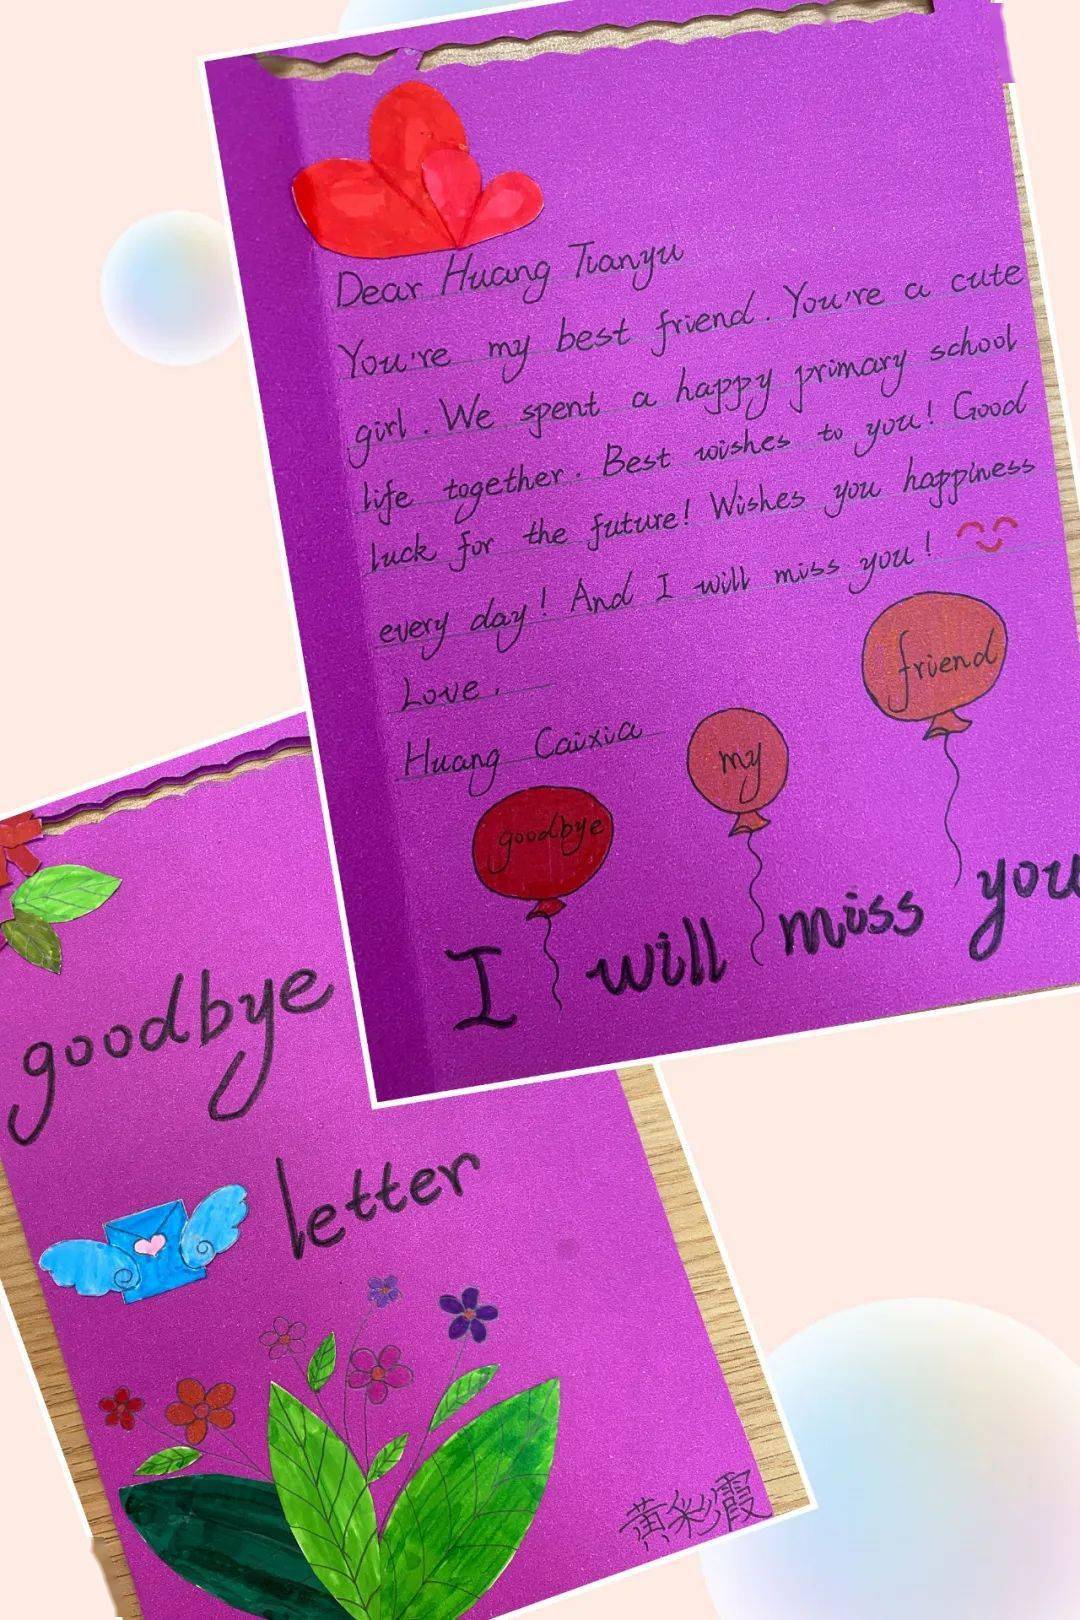 Dear Huang Tianyu
You're my best friend. You're a cute
girl. We spent a happy primary school
life together. Best wishes to you! Good
luck for the future! Wishes you happiness
every day! And I will miss you!
Love.
Huang Caixia
goodbye
my
friend
I will miss you
goodbye
letter
黄彩霞